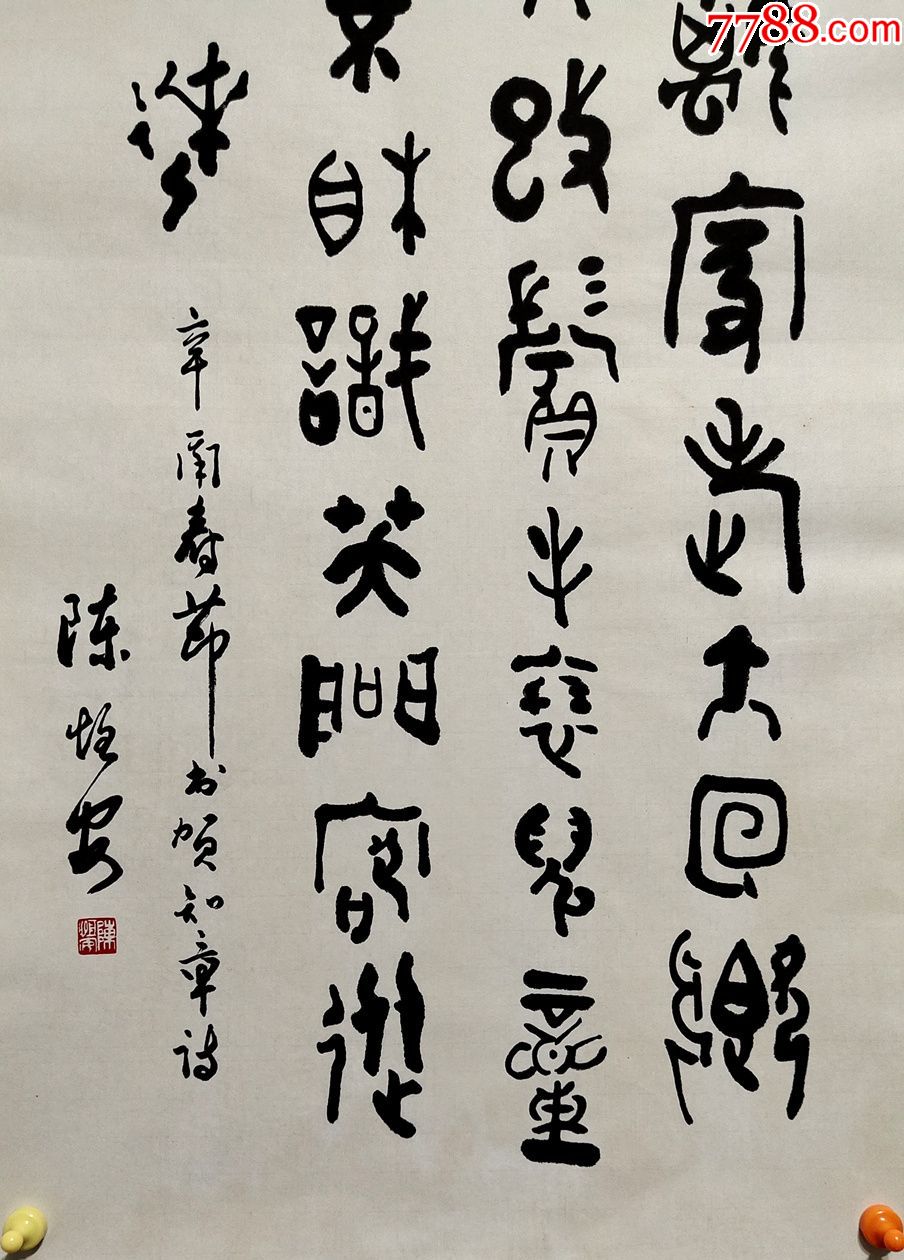 7788.com
離家老大回鄉
改鬢毛衰兒童
相識笑問客從
來
辛酉春節书賀知章詩
陳恒安